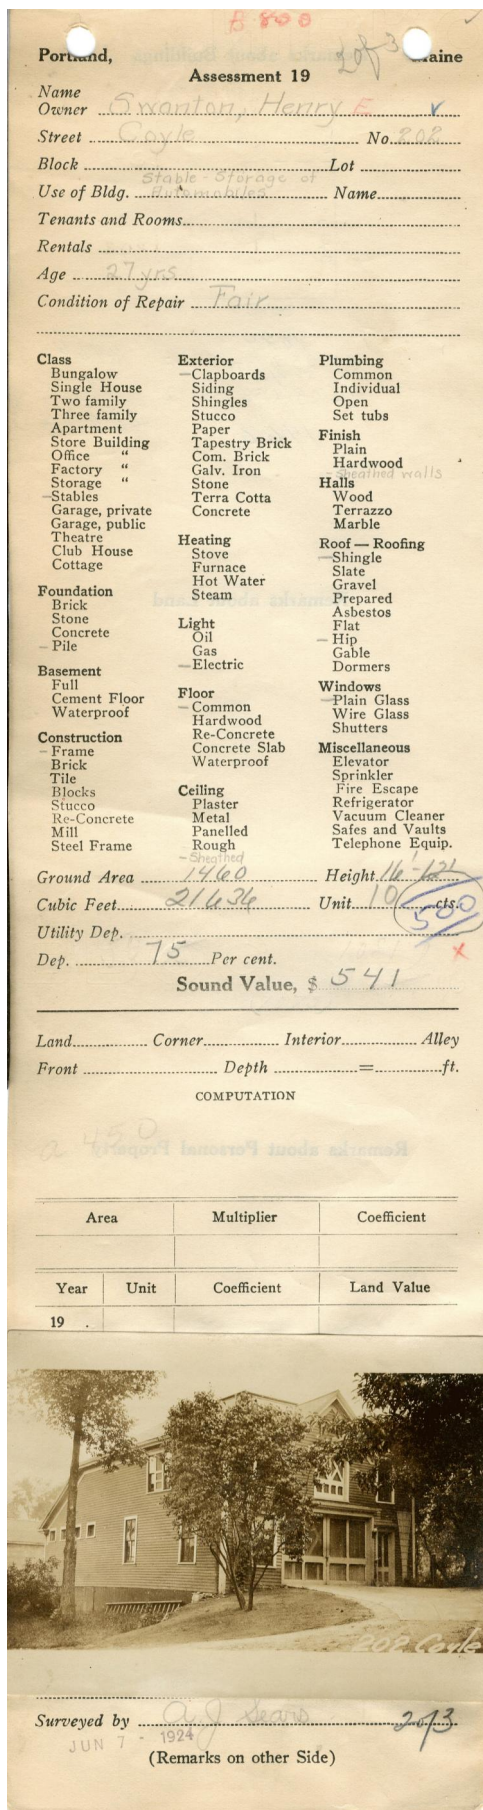 B-800
2 of 3
Portland, Maine
Assessment 19
Name
Owner Swanton, Henry E
Street Coyle No. 202
Block Lot
Stable-Storage of
Use of Bldg. Automobiles Name
Tenants and Rooms
Rentals
Age 27 yrs
Condition of Repair Fair
Class
Bungalow
Single House
Two family
Three family
Apartment
Store Building
Office "
Factory "
Storage "
-Stables
Garage, private
Garage, public
Theatre
Club House
Cottage
Foundation
Brick
Stone
Concrete
- Pile
Basement
Full
Cement Floor
Waterproof
Construction
- Frame
Brick
Tile
Blocks
Stucco
Re-Concrete
Mill
Steel Frame
Exterior
-Clapboards
Siding
Shingles
Stucco
Paper
Tapestry Brick
Com. Brick
Galv. Iron
Stone
Terra Cotta
Concrete
Heating
Stove
Furnace
Hot Water
Steam
Light
Oil
Gas
-Electric
Floor
- Common
Hardwood
Re-Concrete
Concrete Slab
Waterproof
Ceiling
Plaster
Metal
Panelled
Rough
-Sheathed
Plumbing
Common
Individual
Open
Set tubs
Finish
Plain
Hardwood
-Sheathed walls
Halls
Wood
Terrazzo
Marble
Roof — Roofing
-Shingle
Slate
Gravel
Prepared
Asbestos
Flat
- Hip
Gable
Dormers
Windows
-Plain Glass
Wire Glass
Shutters
Miscellaneous
Elevator
Sprinkler
Fire Escape
Refrigerator
Vacuum Cleaner
Safes and Vaults
Telephone Equip.
Ground Area 1460 Height 16'-12'
Cubic Feet 21636 Unit 10 cts.
500
Utility Dep.
Dep. 75 Per cent.
x
Sound Value, $ 541
Land Corner Interior Alley
Front Depth = ft.
COMPUTATION
a 450
Remarks about Personal Property
Area Multiplier Coefficient
Year Unit Coefficient Land Value
19 .
202 Coyle
Surveyed by A J Sears
2 of 3
JUN 7 - 1924
(Remarks on other Side)